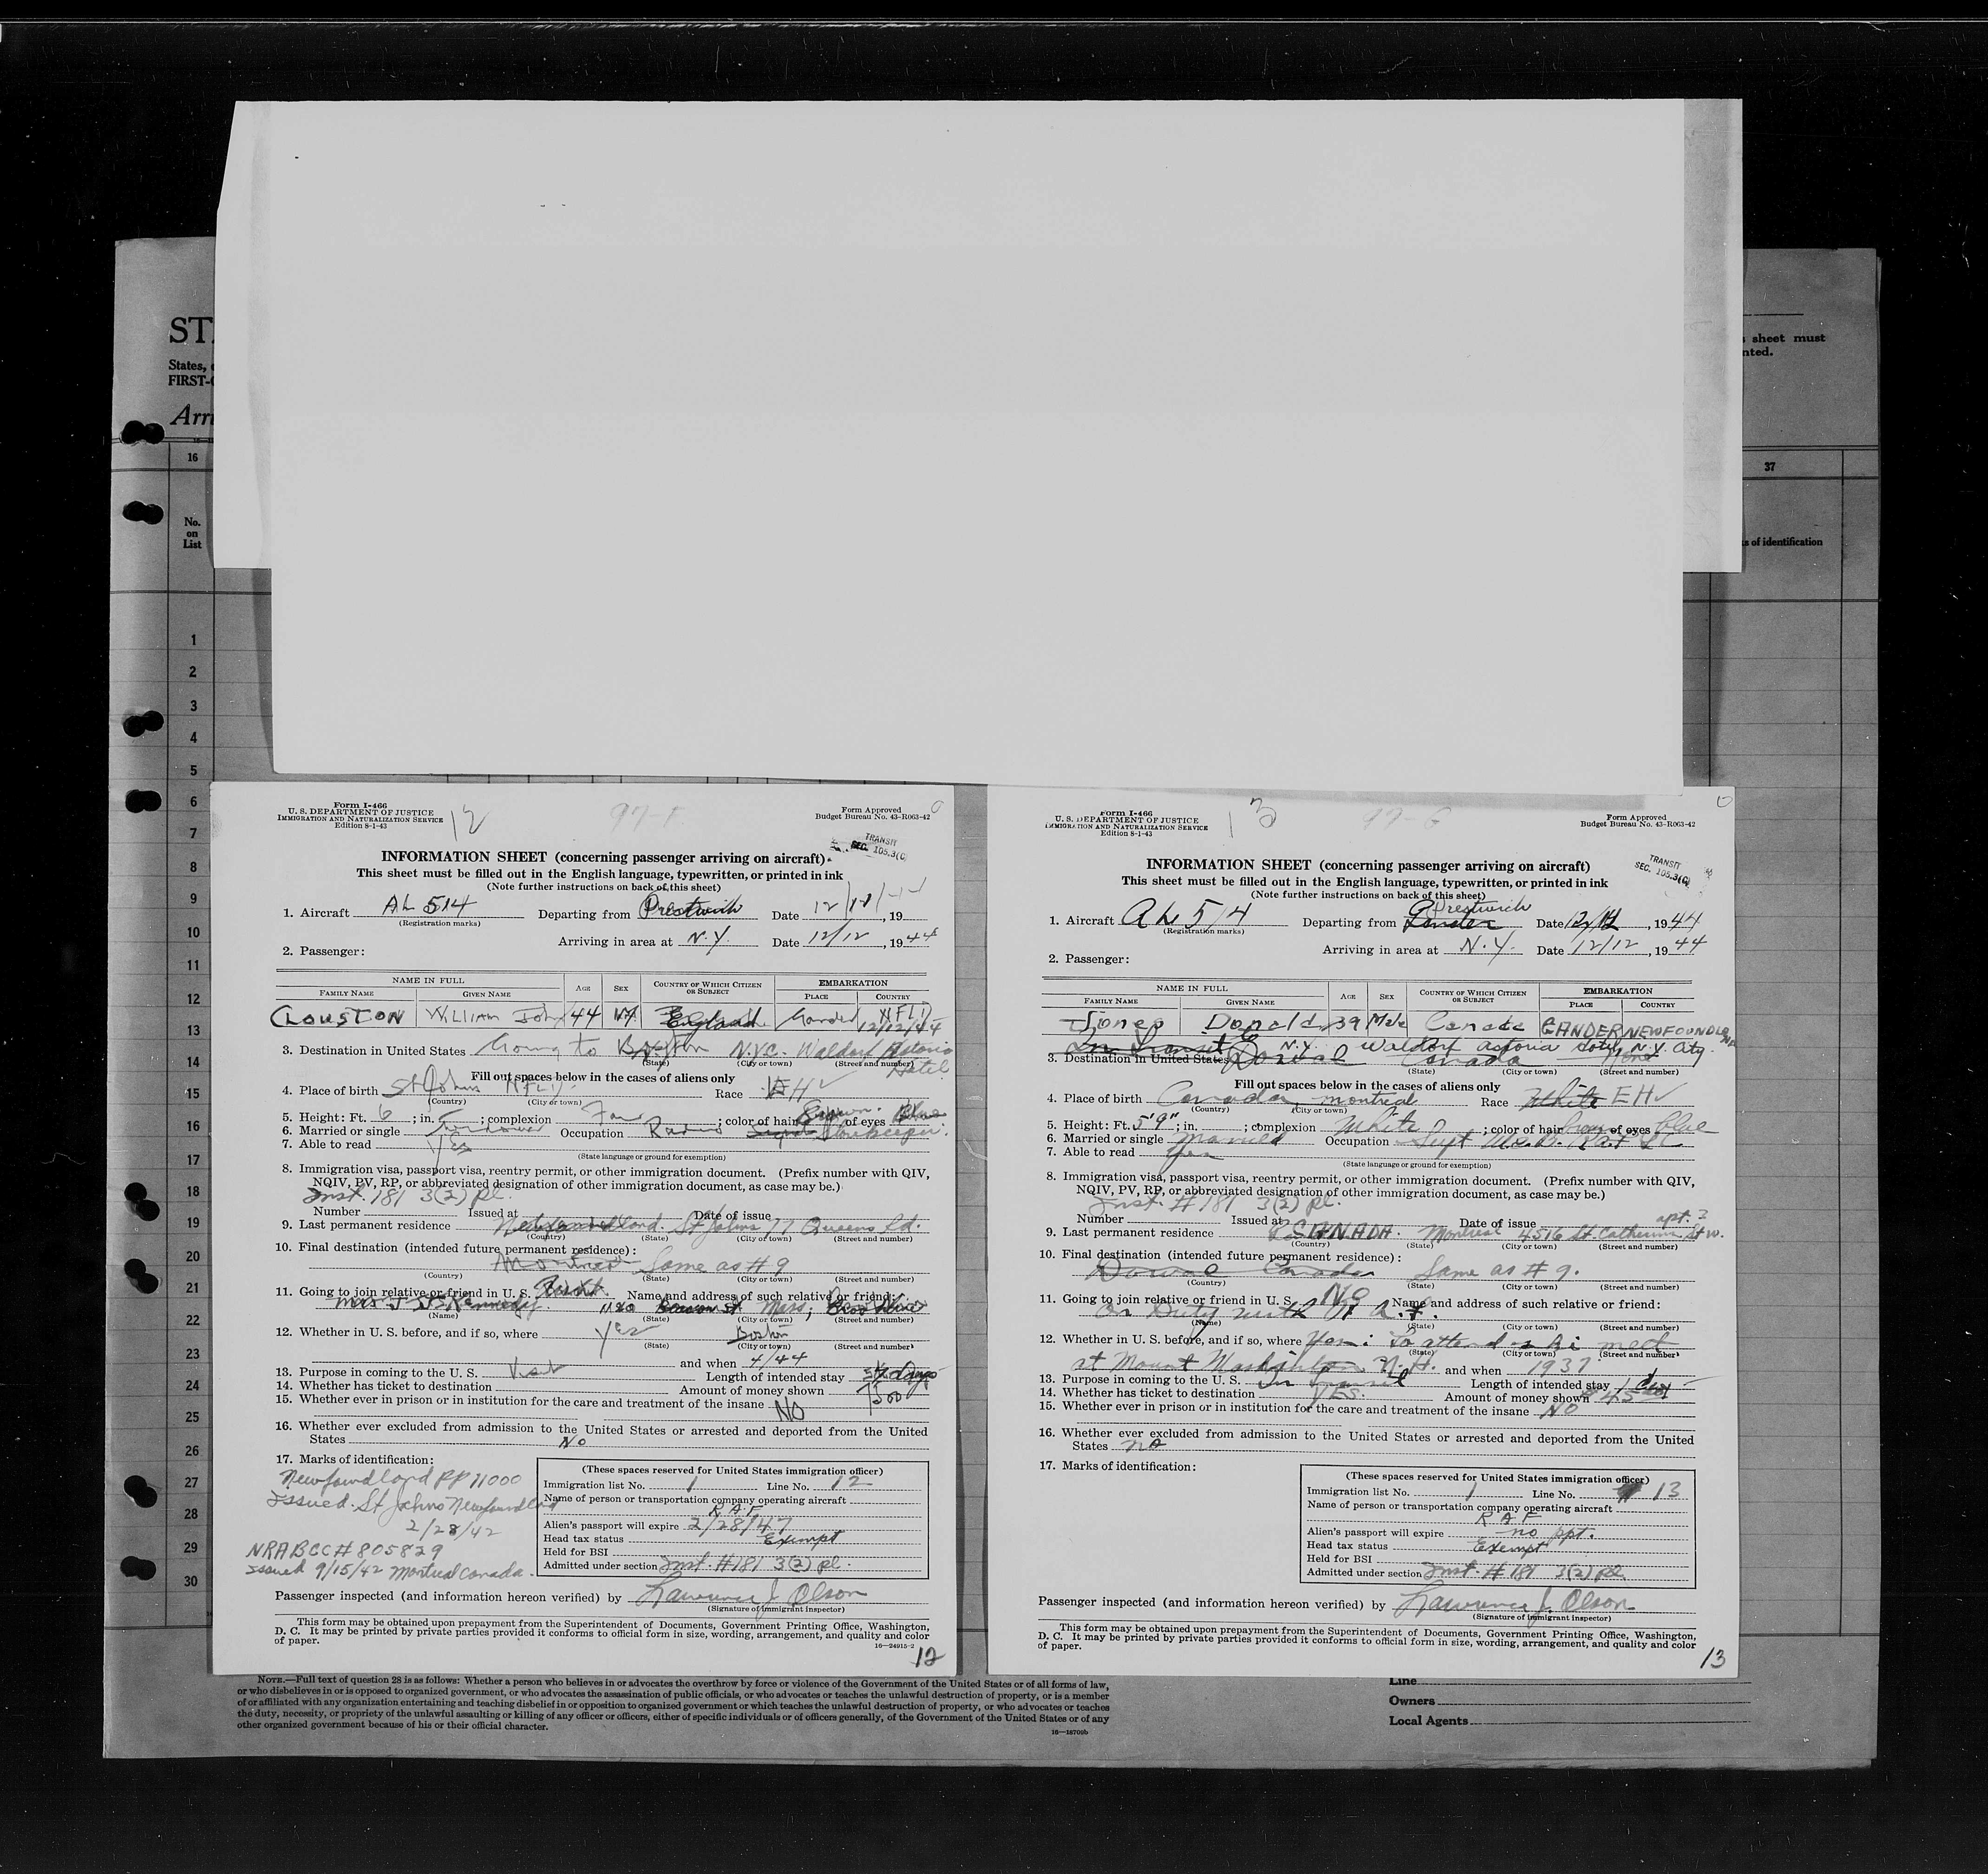 STA
States,
FIRST-
Arri
sheet must
nted.
16
37
No.
on
List
s of identification
1
2
3
4
5
6
7
8
9
10
11
12
13
14
15
16
17
18
19
20
21
22
23
24
25
26
27
28
29
30
Form I-466
U. S. DEPARTMENT OF JUSTICE
IMMIGRATION AND NATURALIZATION SERVICE
Edition 8-1-43
12
97-F
Form Approved
Budget Bureau No. 43-R063-42
TRANSIT
SEC. 105.3(C)
INFORMATION SHEET (concerning passenger arriving on aircraft)
This sheet must be filled out in the English language, typewritten, or printed in ink
(Note further instructions on back of this sheet)
1. Aircraft AL 514 Departing from Prestwick Date 12/ , 19
(Registration marks)
Arriving in area at N.Y. Date 12/12, 1944
2. Passenger:
NAME IN FULL AGE SEX COUNTRY OF WHICH CITIZEN OR SUBJECT EMBARKATION
FAMILY NAME GIVEN NAME PLACE COUNTRY
CLOUSTON WILLIAM John 44 M England Gander NFLD
12/12/44
3. Destination in United States Going to Boston N.Y.C. Waldorf Astoria
Hotel
(State) (City or town) (Street and number)
Fill out spaces below in the cases of aliens only
4. Place of birth St Johns NFLD Race EH
(Country) (City or town)
5. Height: Ft. 6; in. ; complexion Fair; color of hair Brown of eyes Blue
6. Married or single Widower Occupation Radio Storekeeper.
7. Able to read Yes
(State language or ground for exemption)
8. Immigration visa, passport visa, reentry permit, or other immigration document. (Prefix number with QIV,
NQIV, PV, RP, or abbreviated designation of other immigration document, as case may be.)
Inst. 181 3(2) pl.
Number Issued at Date of issue
9. Last permanent residence Newfoundland. St Johns 77 Queens Rd.
(Country) (State) (City or town) (Street and number)
10. Final destination (intended future permanent residence):
Montreal Same as #9
(Country) (State) (City or town) (Street and number)
11. Going to join relative or friend in U. S. Name and address of such relative or friend:
Mrs J Kennedy. 1180 Beacon St Mass,
(Name) (State) (City or town) (Street and number)
12. Whether in U. S. before, and if so, where Yes Boston
(State) (City or town) (Street and number)
and when 4/44
13. Purpose in coming to the U. S. Visit Length of intended stay days
14. Whether has ticket to destination Amount of money shown
15. Whether ever in prison or in institution for the care and treatment of the insane No
16. Whether ever excluded from admission to the United States or arrested and deported from the United
States No
17. Marks of identification:
Newfoundland PP 11000
Issued St Johns Newfoundland
2/28/42
NRABCC# 805829
Issued 9/15/42 Montreal Canada.
(These spaces reserved for United States immigration officer)
Immigration list No. 1 Line No. 12
Name of person or transportation company operating aircraft
RAF
Alien's passport will expire 2/28/47
Head tax status Exempt
Held for BSI
Admitted under section Inst. #181 3(2) pl.
Passenger inspected (and information hereon verified) by Lawrence J. Olson
(Signature of immigrant inspector)
This form may be obtained upon prepayment from the Superintendent of Documents, Government Printing Office, Washington,
D. C. It may be printed by private parties provided it conforms to official form in size, wording, arrangement, and quality and color
of paper.
16—24915-2
12
Form I-466
U. S. DEPARTMENT OF JUSTICE
IMMIGRATION AND NATURALIZATION SERVICE
Edition 8-1-43
13
97-G
Form Approved
Budget Bureau No. 43-R063-42
TRANSIT
SEC. 105.3(C)
INFORMATION SHEET (concerning passenger arriving on aircraft)
This sheet must be filled out in the English language, typewritten, or printed in ink
(Note further instructions on back of this sheet)
Prestwick
1. Aircraft AL 514 Departing from Gander Date 12/ , 1944
(Registration marks)
Arriving in area at N.Y. Date 12/12, 1944
2. Passenger:
NAME IN FULL AGE SEX COUNTRY OF WHICH CITIZEN OR SUBJECT EMBARKATION
FAMILY NAME GIVEN NAME PLACE COUNTRY
Jones Donald E 39 Male Canada GANDER NEWFOUNDLAND
In Transit N.Y. Waldorf Astoria Hotel, N.Y. City
3. Destination in United States Dorval Canada
(State) (City or town) (Street and number)
Fill out spaces below in the cases of aliens only
4. Place of birth Canada Montreal Race White EH
(Country) (City or town)
5. Height: Ft. 5'9"; in. ; complexion White; color of hair Brown of eyes blue
6. Married or single Married Occupation Supt
7. Able to read Yes
(State language or ground for exemption)
8. Immigration visa, passport visa, reentry permit, or other immigration document. (Prefix number with QIV,
NQIV, PV, RP, or abbreviated designation of other immigration document, as case may be.)
Inst. #181 3(2) pl.
Number Issued at Date of issue
apt. 2
9. Last permanent residence CANADA. Montreal 4516 St. Catherine St W.
(Country) (State) (City or town) (Street and number)
10. Final destination (intended future permanent residence):
Dorval Canada Same as #9.
(Country) (State) (City or town) (Street and number)
11. Going to join relative or friend in U. S. No Name and address of such relative or friend:
On Duty with R.A.F.
(Name) (State) (City or town) (Street and number)
12. Whether in U. S. before, and if so, where Yes: To attend a ski meet
(State) (City or town) (Street and number)
at Mount Washington N.H. and when 1937
13. Purpose in coming to the U. S. In Transit Length of intended stay 1 day
14. Whether has ticket to destination YES. Amount of money shown $45
15. Whether ever in prison or in institution for the care and treatment of the insane NO
16. Whether ever excluded from admission to the United States or arrested and deported from the United
States no
17. Marks of identification:
(These spaces reserved for United States immigration officer)
Immigration list No. 1 Line No. 13
Name of person or transportation company operating aircraft
RAF
Alien's passport will expire no ppt.
Head tax status Exempt
Held for BSI
Admitted under section Inst. #181 3(2) pl.
Passenger inspected (and information hereon verified) by Lawrence J. Olson
(Signature of immigrant inspector)
This form may be obtained upon prepayment from the Superintendent of Documents, Government Printing Office, Washington,
D. C. It may be printed by private parties provided it conforms to official form in size, wording, arrangement, and quality and color
of paper.
13
NOTE.—Full text of question 28 is as follows: Whether a person who believes in or advocates the overthrow by force or violence of the Government of the United States or of all forms of law,
or who disbelieves in or is opposed to organized government, or who advocates the assassination of public officials, or who advocates or teaches the unlawful destruction of property, or is a member
of or affiliated with any organization entertaining and teaching disbelief in or opposition to organized government or which teaches the unlawful destruction of property, or who advocates or teaches
the duty, necessity, or propriety of the unlawful assaulting or killing of any officer or officers, either of specific individuals or of officers generally, of the Government of the United States or of any
other organized government because of his or their official character.
16—18709b
Line
Owners
Local Agents